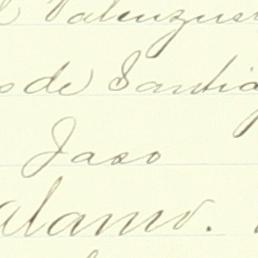 Valenzue
de Santia
Jaso
alamo.